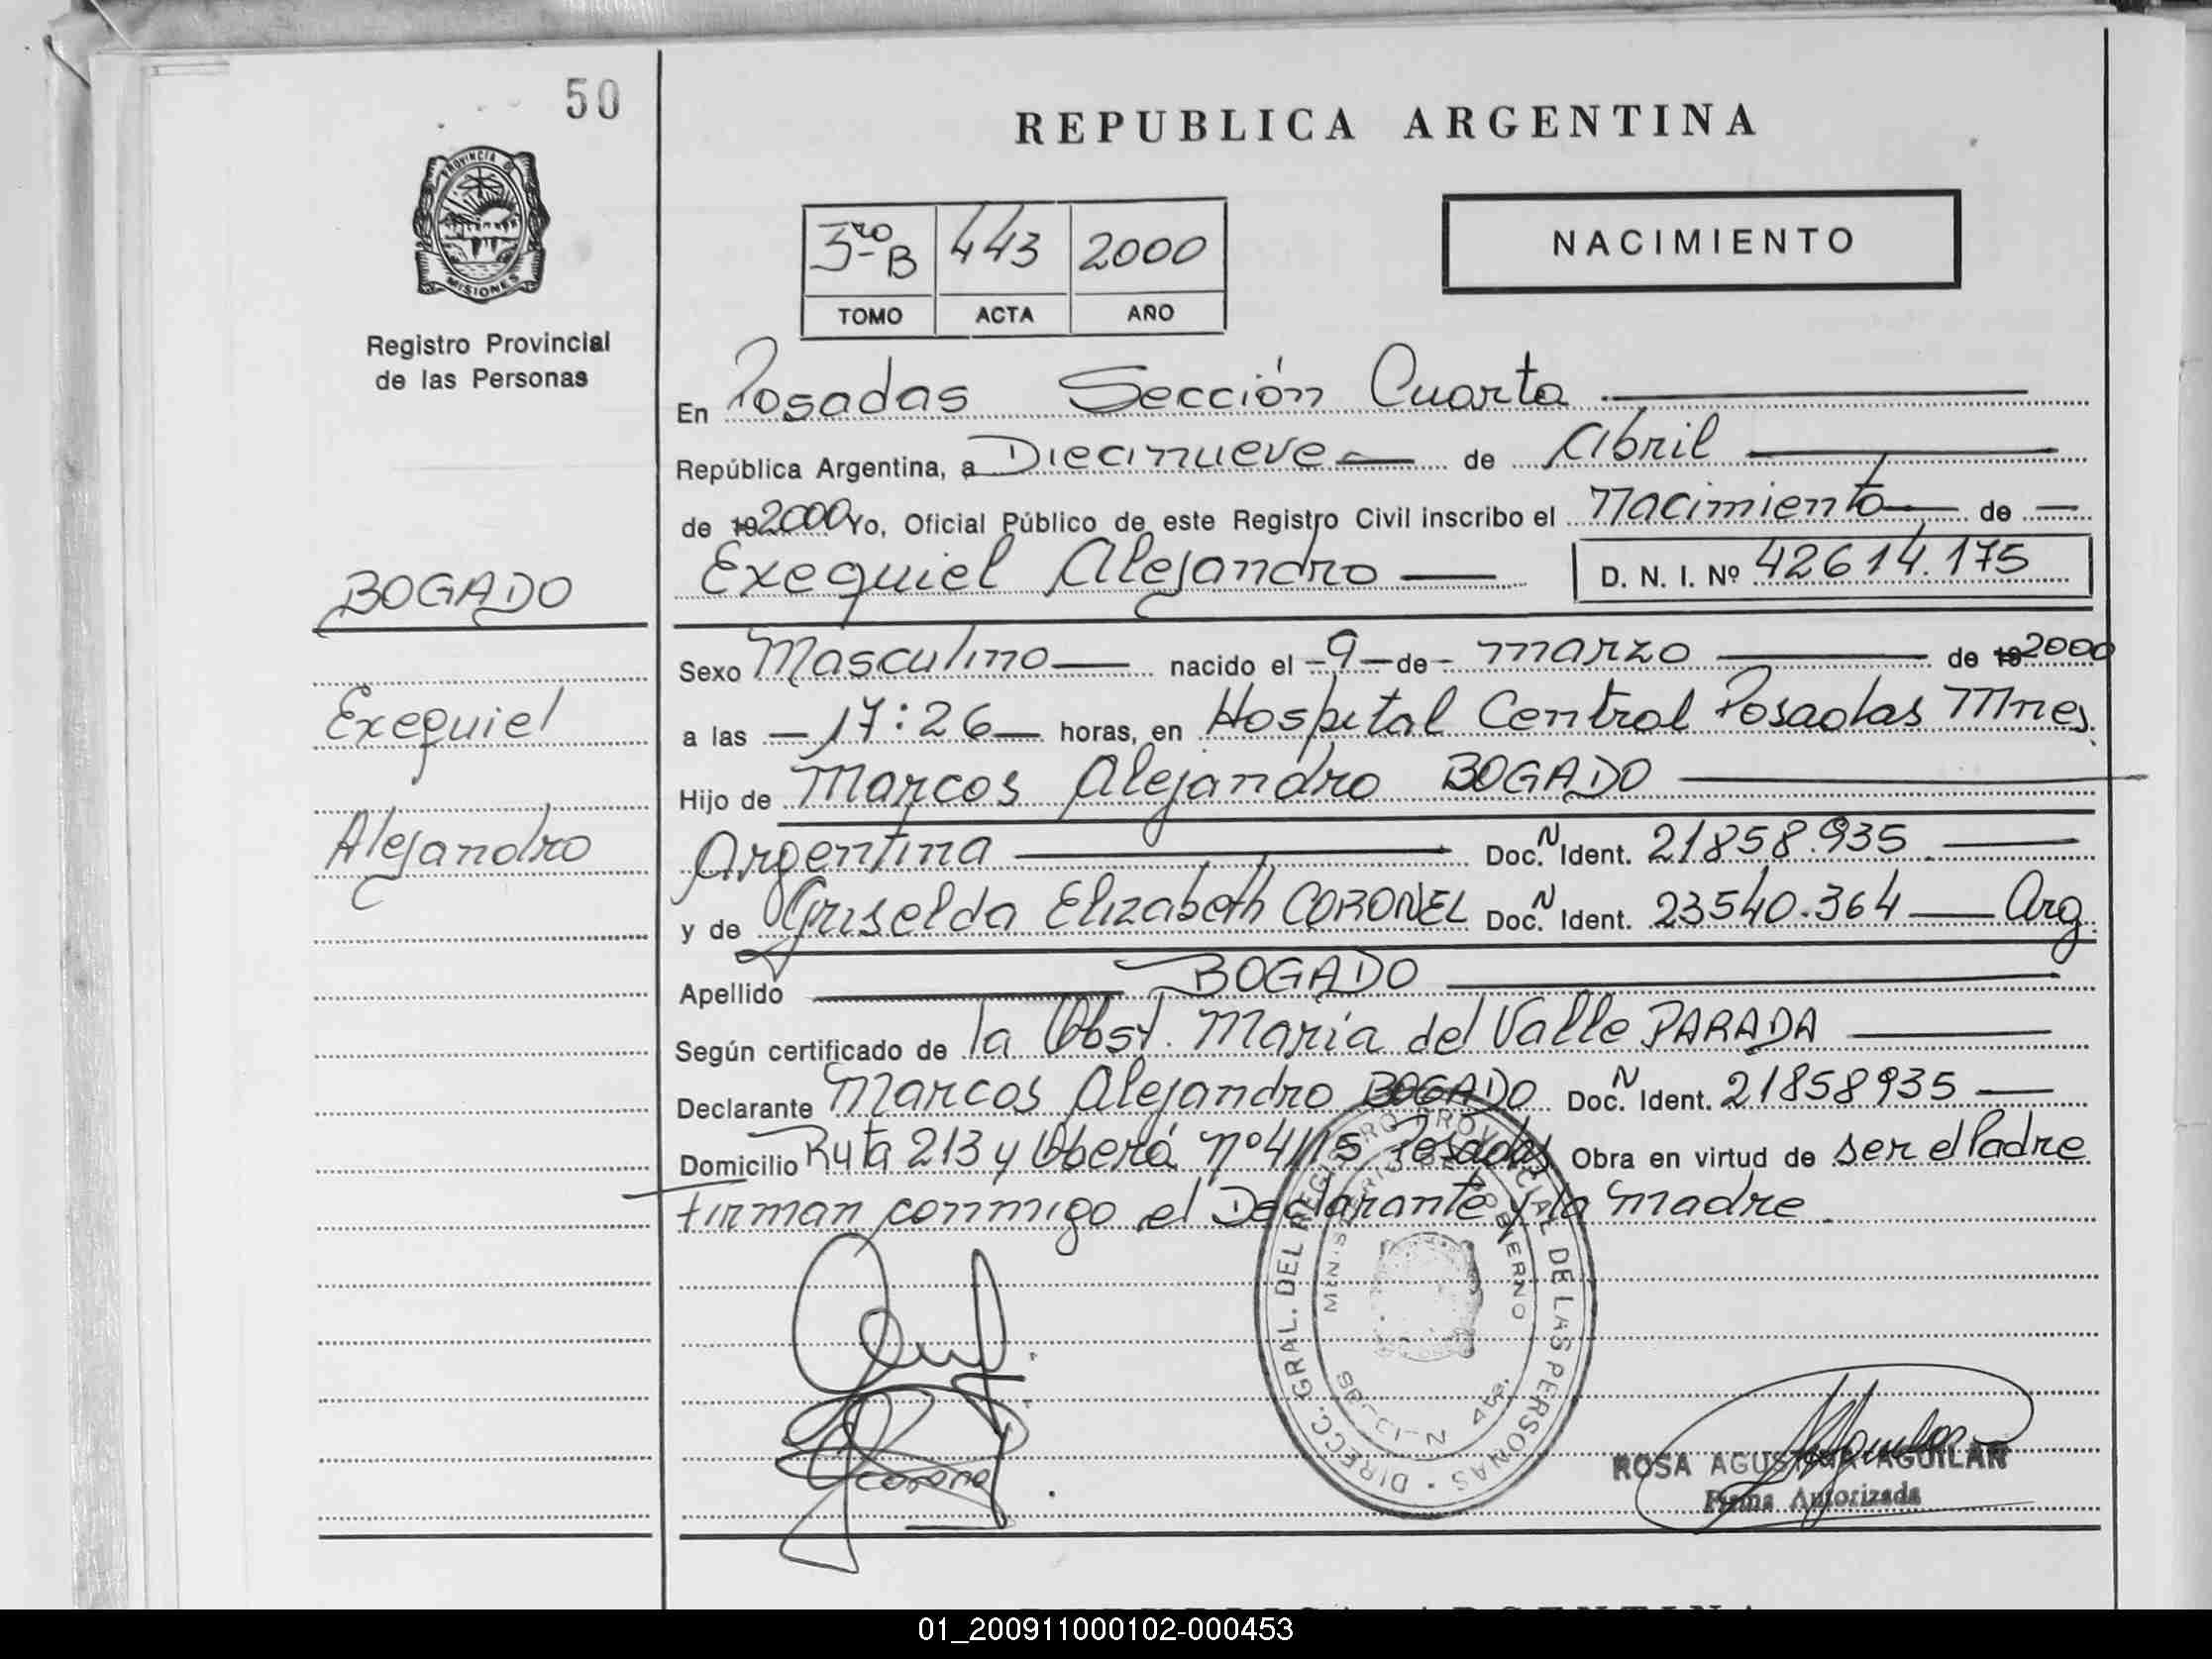 50
REPUBLICA ARGENTINA
PROVINCIA DE
MISIONES
Registro Provincial
de las Personas
3ro B 443 2000
TOMO ACTA AÑO
NACIMIENTO
En Posadas Sección Cuarta
República Argentina, a Diecinueve de Abril
de 19 2000 Yo, Oficial Público de este Registro Civil inscribo el nacimiento de
Exequiel Alejandro D. N. I. Nº 42614.175
BOGADO
Exequiel
Alejandro
Sexo Masculino nacido el -9- de - marzo de 19 2000
a las - 17:26 - horas, en Hospital Central Posadas Mnes.
Hijo de Marcos Alejandro BOGADO
Argentina Doc. N Ident. 21858.935
y de Griselda Elizabeth CORONEL Doc. N Ident. 23540.364 Arg.
Apellido BOGADO
Según certificado de la Obst. Maria del Valle PARADA
Declarante Marcos Alejandro BOGADO Doc. N Ident. 21858935
Domicilio Ruta 213 y Oberá nº 4115 Posadas Obra en virtud de ser el Padre
Firman conmigo el Declarante y la madre
DIRECC. GRAL. DEL REGISTRO PROVINCIAL DE LAS PERSONAS
MINISTERIO DE GOBIERNO
ROSA AGUSTINA AGUILAR
Firma Autorizada
01_200911000102-000453